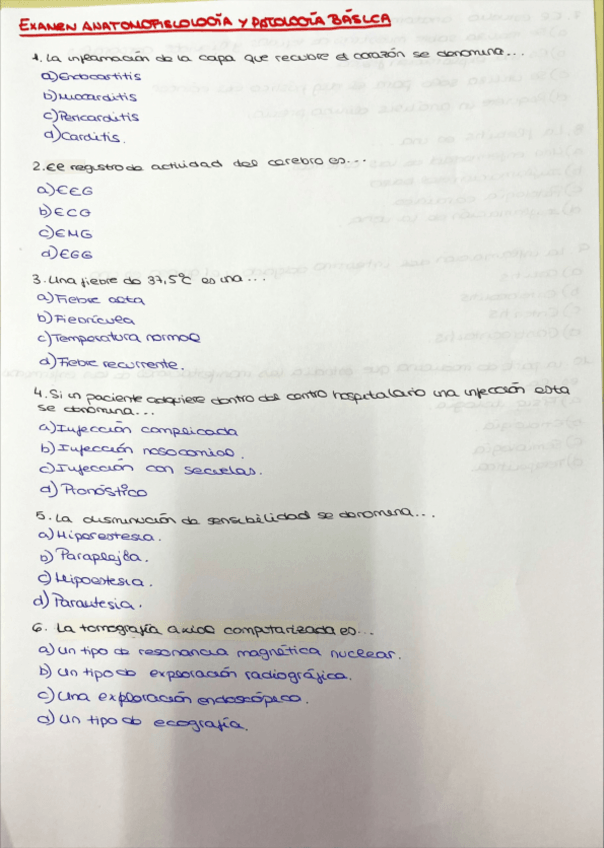 EXAMEN ANATOMOFISIOLOGÍA Y PATOLOGÍA BÁSICA
1. La inflamación de la capa que recubre el corazón se denomina...
a) Endocartitis
b) Miocarditis
c) Pericarditis
d) Carditis.
2. El registro de actividad del cerebro es...
a) EEG
b) ECG
c) EMG
d) EGG
3. Una fiebre de 37,5ºC es una...
a) Fiebre alta
b) Febrícula
c) Temperatura normal
d) Fiebre recurrente.
4. Si un paciente adquiere dentro del centro hospitalario una infección esta
se denomina...
a) Infección complicada
b) Infección nosocomial.
c) Infección con secuelas.
d) Pronóstico
5. La disminución de sensibilidad se denomina...
a) Hiperestesia.
b) Paraplejía.
c) Hipoestesia.
d) Parestesia.
6. La tomografía axial computarizada es...
a) Un tipo de resonancia magnética nuclear.
b) Un tipo de exploración radiográfica.
c) Una exploración endoscópica.
d) Un tipo de ecografía.